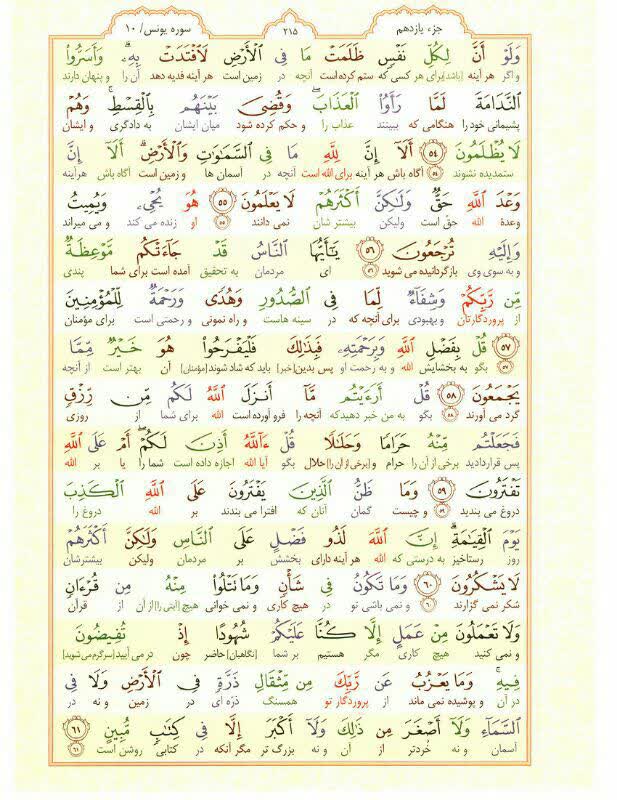 جزء یازدهم
۲۱۵
سوره یونس/ ۱۰
وَلَوْ أَنَّ لِكُلِّ نَفْسٍ ظَلَمَتْ مَا فِي ٱلْأَرْضِ لَٱفْتَدَتْ بِهِۦۗ وَأَسَرُّوا۟
و اگر هر آینه [باشد] برای هر کسی که ستم کرده است آنچه در زمین است هر آینه فدیه دهد آن را و پنهان دارند
ٱلنَّدَامَةَ لَمَّا رَأَوُا۟ ٱلْعَذَابَۖ وَقُضِيَ بَيْنَهُم بِٱلْقِسْطِۚ وَهُمْ
پشیمانی خود را هنگامی که ببینند عذاب را و حکم کرده شود میان ایشان به دادگری و ایشان
لَا يُظْلَمُونَ ۝٥٤ أَلَآ إِنَّ لِلَّهِ مَا فِي ٱلسَّمَٰوَٰتِ وَٱلْأَرْضِۗ أَلَآ إِنَّ
ستمدیده نشوند ۵۴ آگاه باش هر آینه برای الله است آنچه در آسمان ها و زمین است آگاه باش هرآینه
وَعْدَ ٱللَّهِ حَقٌّ وَلَٰكِنَّ أَكْثَرَهُمْ لَا يَعْلَمُونَ ۝٥٥ هُوَ يُحْيِۦ وَيُمِيتُ
وعدهٔ الله حق است ولیکن بیشتر شان نمی دانند ۵۵ او زنده می کند و می میراند
وَإِلَيْهِ تُرْجَعُونَ ۝٥٦ يَٰٓأَيُّهَا ٱلنَّاسُ قَدْ جَآءَتْكُم مَّوْعِظَةٌ
و به سوی وی بازگردانیده می شوید ۵۶ ای مردمان به تحقیق آمده است برای شما پندی
مِّن رَّبِّكُمْ وَشِفَآءٌ لِّمَا فِي ٱلصُّدُورِ وَهُدًى وَرَحْمَةٌ لِّلْمُؤْمِنِينَ
از پروردگارتان و بهبودی برای آنچه که در سینه هاست و راه نمونی و رحمتی است برای مؤمنان
۝٥٧ قُلْ بِفَضْلِ ٱللَّهِ وَبِرَحْمَتِهِۦ فَبِذَٰلِكَ فَلْيَفْرَحُوا۟ هُوَ خَيْرٌ مِّمَّا
۵۷ بگو به بخشایش الله و به رحمت او پس بدین [خبر] باید که شاد شوند [مؤمنان] آن بهتر است از آنچه
يَجْمَعُونَ ۝٥٨ قُلْ أَرَءَيْتُم مَّآ أَنزَلَ ٱللَّهُ لَكُم مِّن رِّزْقٍ
گرد می آورند ۵۸ بگو به من خبر دهید که آنچه را فرو آورده است الله برای شما از روزی
فَجَعَلْتُم مِّنْهُ حَرَامًا وَحَلَٰلًا قُلْ ءَآللَّهُ أَذِنَ لَكُمْۖ أَمْ عَلَى ٱللَّهِ
پس قراردادید برخی از آن را حرام و [برخی از آن را] حلال بگو آیا الله اجازه داده است شما را یا بر الله
تَفْتَرُونَ ۝٥٩ وَمَا ظَنُّ ٱلَّذِينَ يَفْتَرُونَ عَلَى ٱللَّهِ ٱلْكَذِبَ
دروغ می بندید ۵۹ و چیست گمان آنان که افترا می بندند بر الله دروغ را
يَوْمَ ٱلْقِيَٰمَةِۗ إِنَّ ٱللَّهَ لَذُو فَضْلٍ عَلَى ٱلنَّاسِ وَلَٰكِنَّ أَكْثَرَهُمْ
روز رستاخیز به درستی که الله هر آینه دارای بخشش بر مردمان ولیکن بیشترشان
لَا يَشْكُرُونَ ۝٦٠ وَمَا تَكُونُ فِي شَأْنٍ وَمَا تَتْلُوا۟ مِنْهُ مِن قُرْءَانٍ
شکر نمی گزارند ۶۰ و نمی باشی تو در هیچ کاری و نمی خوانی هیچ [آیتی را] از آن از قرآن
وَلَا تَعْمَلُونَ مِنْ عَمَلٍ إِلَّا كُنَّا عَلَيْكُمْ شُهُودًا إِذْ تُفِيضُونَ
و نمی کنید هیچ کاری مگر هستیم بر شما [نگاهبان] حاضر چون در می آیید [سرگرم می شوید]
فِيهِۚ وَمَا يَعْزُبُ عَن رَّبِّكَ مِن مِّثْقَالِ ذَرَّةٍ فِي ٱلْأَرْضِ وَلَا فِي
در آن و پوشیده نمی ماند از پروردگار تو همسنگ ذره ای در زمین و نه در
ٱلسَّمَآءِ وَلَآ أَصْغَرَ مِن ذَٰلِكَ وَلَآ أَكْبَرَ إِلَّا فِي كِتَٰبٍ مُّبِينٍ ۝٦١
آسمان و نه خُردتر از آن و نه بزرگ تر مگر آنکه در کتابی روشن است ۶۱